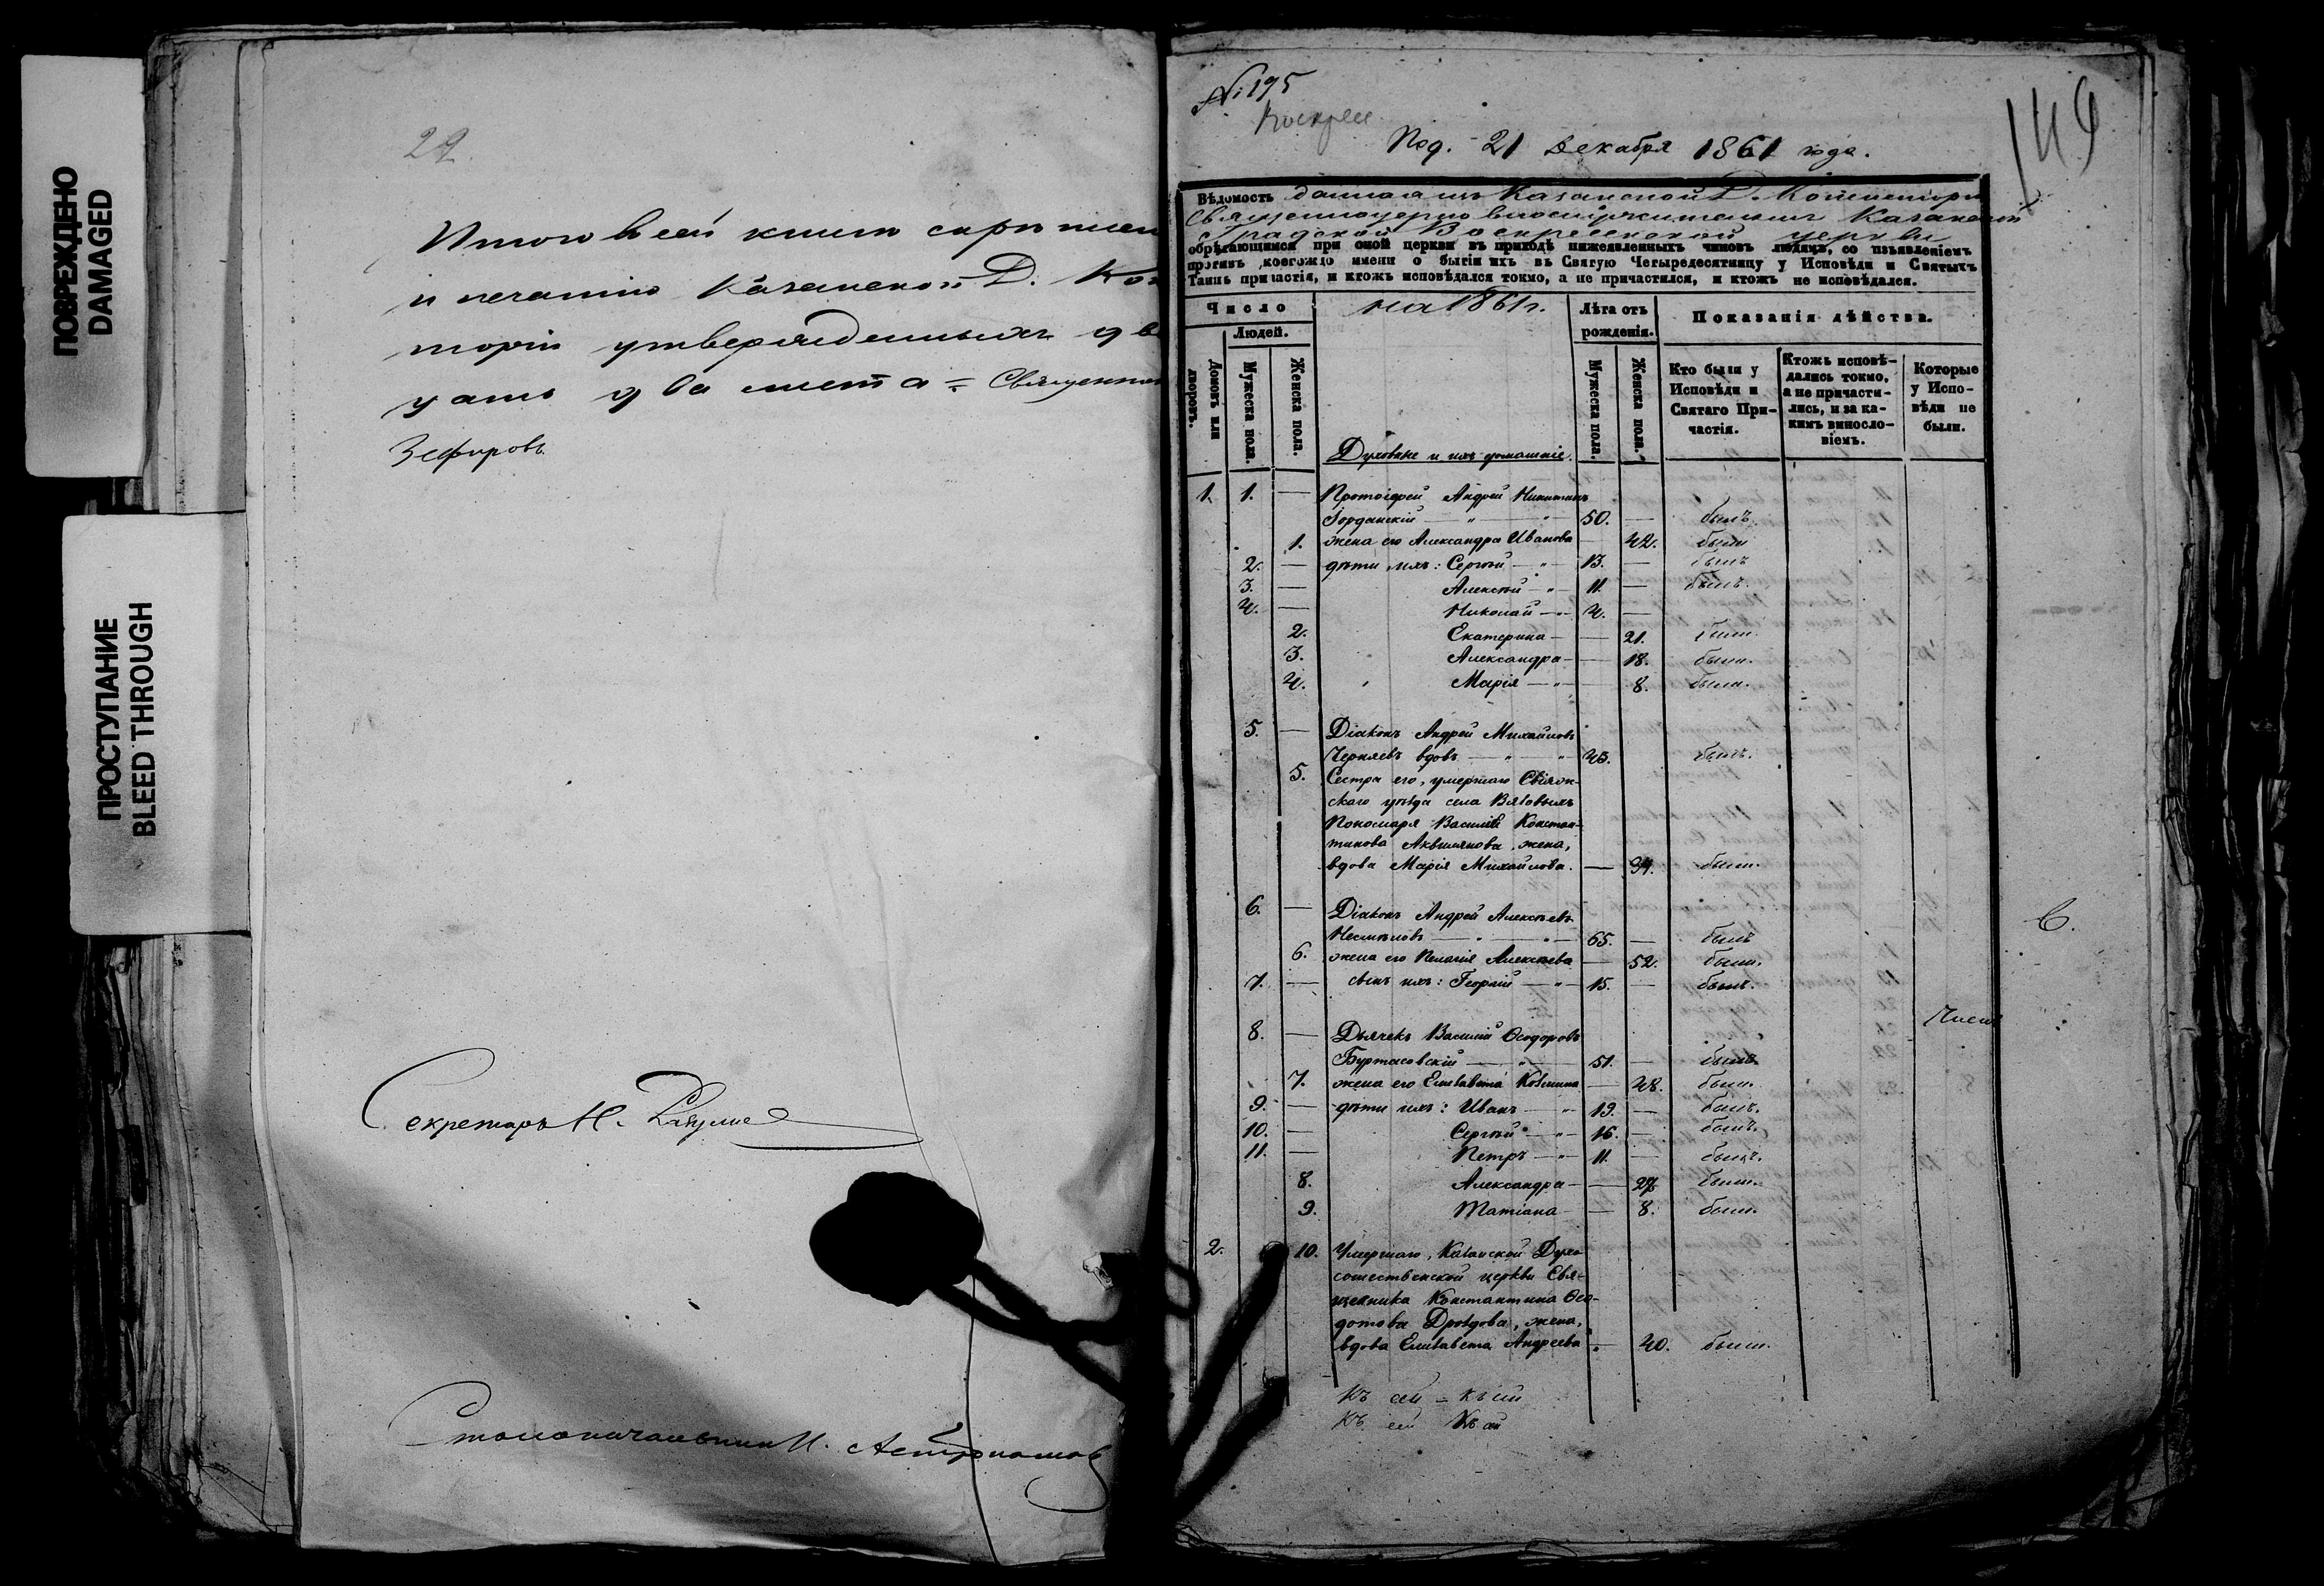 ПОВРЕЖДЕНО
DAMAGED
ПРОСТУПАНИЕ
BLEED THROUGH
22
Итого в сей книге скрѣплен
и печатью Казанской Д. Кон
торіи утвержденныхъ два
цать два листа = Священник
Зефировъ
Секретарь Н.
Столоначальник И. Астрономов
№ 195
Воскрес
Под. 21 Декабря 1861 года.
149
Вѣдомость данная изъ Казанской Д. Консисторіи
Священноцерковнослужителямъ Казанской
Градской Воскресенской церкви
обрѣтающимся при оной церкви въ приходѣ нижеявленныхъ чиновъ людяхъ, со изъявленіемъ
противъ коегождо имени о бытіи ихъ въ Святую Четыредесятницу у Исповѣди и Святыхъ
Таинъ причастія, и ктожъ исповѣдался токмо, а не причастился, и ктожъ не исповѣдался.
Число
на 1861 г.
Лѣта отъ рожденія.
Показанія дѣйства.
Людей.
Домовъ или дворовъ.
Мужеска пола.
Женска пола.
Мужеска пола.
Женска пола.
Кто были у Исповѣди и Святаго Причастія.
Ктожъ исповѣдались токмо, а не причастились, и за какимъ винословіемъ.
Которые у Исповѣди не были.
Духовные и ихъ домашніе.
1. 1. — Протоіерей Андрей Никитинъ
Іорданскій — " — " — 50. — былъ.
1. жена его Александра Иванова — 42. была
2. — дѣти ихъ: Сергѣй — " — 13. — былъ
3. — Алексѣй — " — 11. — былъ.
4. — Николай — " — 4. —
2. Екатерина — — 21. была.
3. Александра — — 18. была.
4. Марія — " — 8. была.
5. — Діаконъ Андрей Михайловъ
Черняевъ вдовъ — " — " — 45. былъ.
5. Сестра его, умершаго Свіяж-
скаго уѣзда села Вязовыхъ
Пономаря Василія Констан-
тинова Аквилянова, жена,
вдова Марія Михайлова. — 34. была.
6. — Діаконъ Андрей Алексѣевъ
Несмѣловъ — " — " — 65. — былъ
6. жена его Пелагія Алексѣева — 52. была.
7. — сынъ ихъ: Георгій — " — 15. — былъ.
С.
Числ
8. — Дьячекъ Василій Ѳеодоровъ
Буртасовскій — " — 51. — былъ.
7. жена его Елизавета Козмина — 48. была.
9. — дѣти ихъ: Иванъ — " — 19. — былъ.
10. — Сергѣй — " — 16. — былъ.
11. — Петръ — " — 11. — былъ.
8. Александра — — 27 была.
9. Татіана — — 8. была.
2. 10. Умершаго, Казанской Духо-
сошественской церкви Свя-
щенника Константина Ѳео-
дотова Дроздова, жена,
вдова Елизавета Андреева — 40. была.